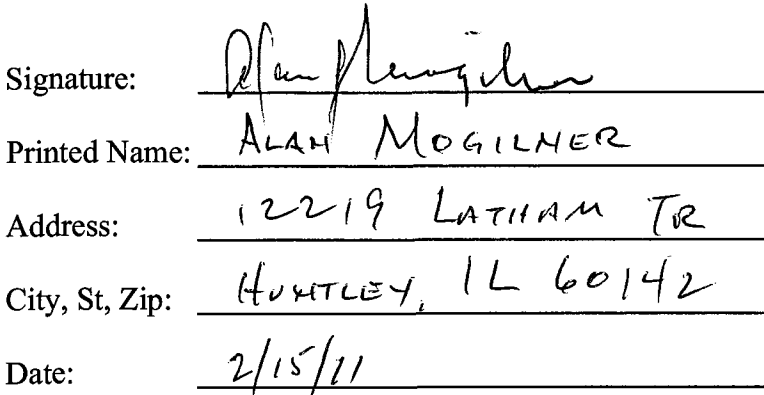 Signature: Alan Mogilner
Printed Name: ALAN MOGILNER
Address: 12219 LATHAM TR
City, St, Zip: HUNTLEY, IL 60142
Date: 2/15/11